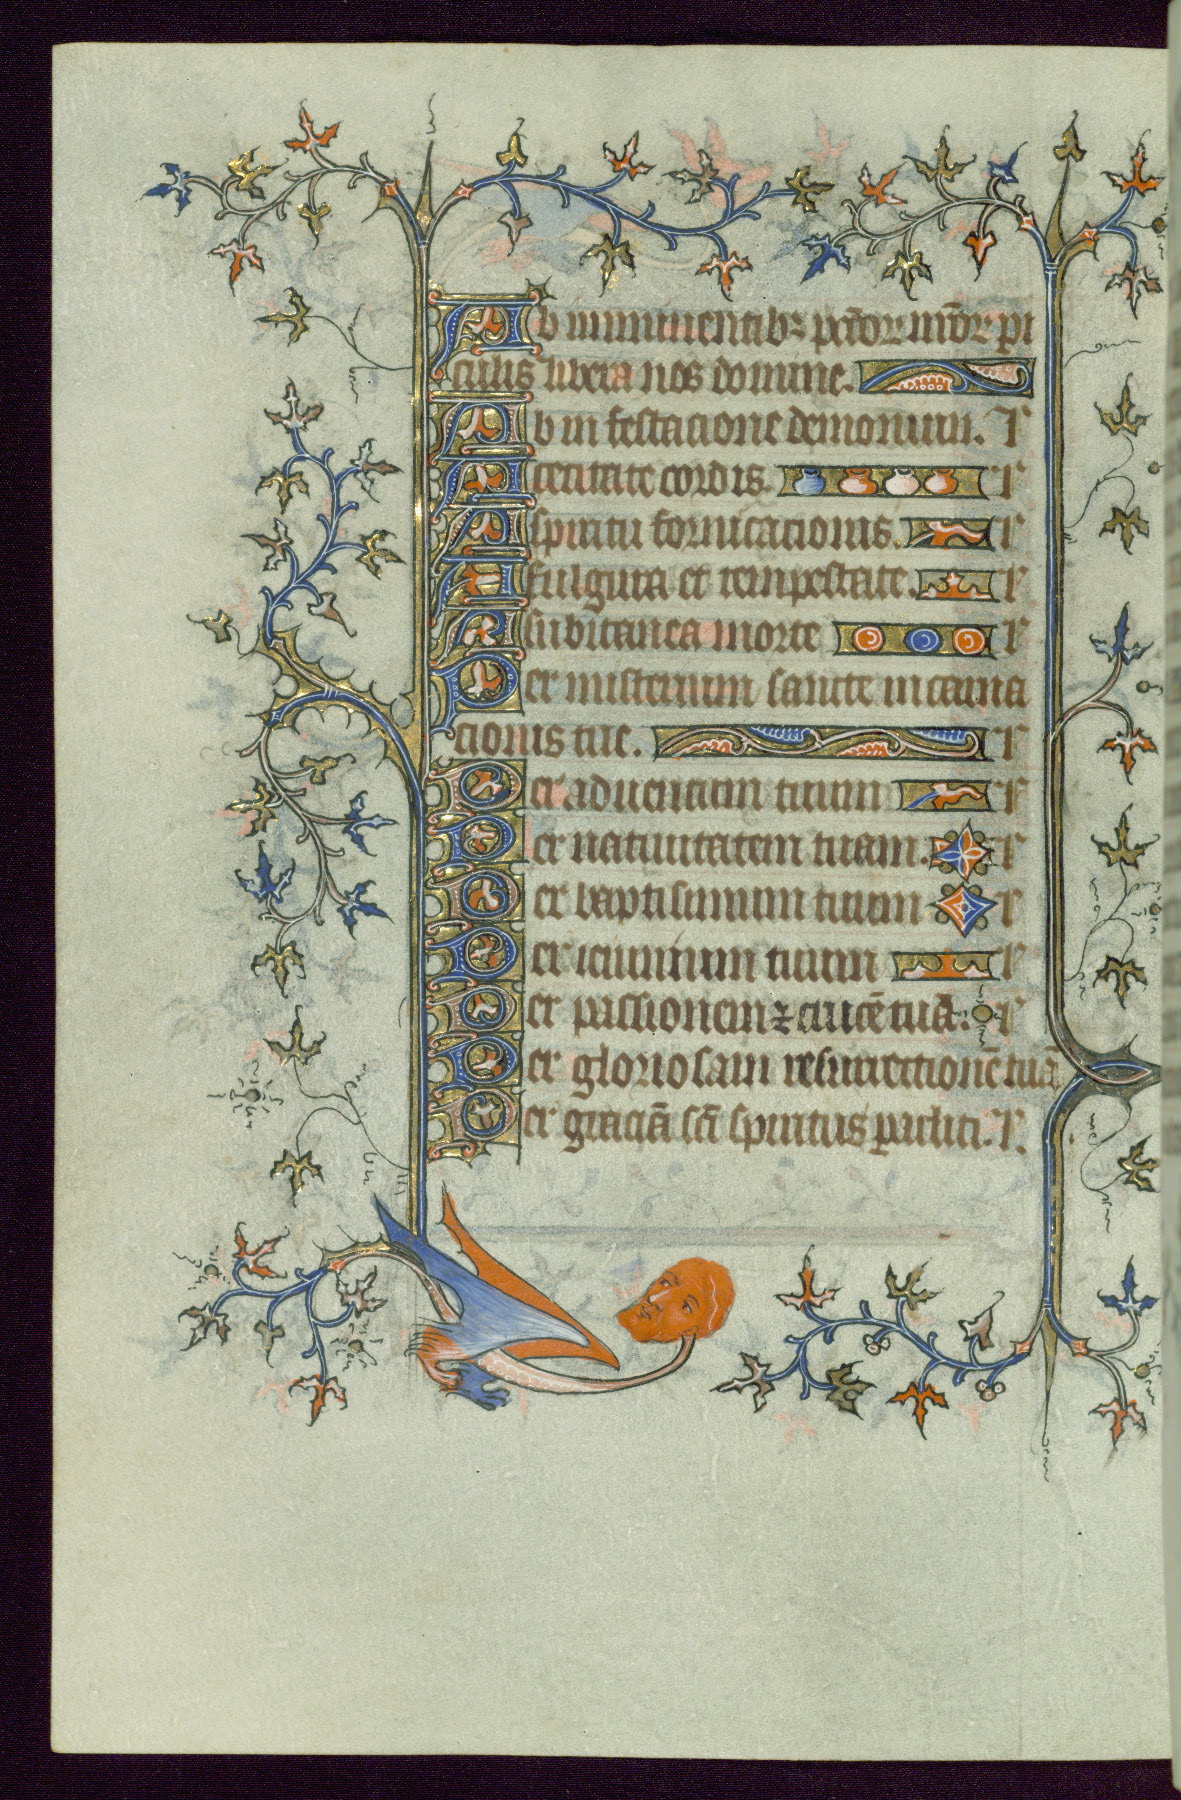 Ab iminentibꝫ pctoꝝ nroꝝ pi
culis libera nos domine.
Ab in festacione demonum. l
A cecitate cordis. l
A spiritu fornicacionis. l
A fulgura et tempestate. l
A subitanea morte l
Per misterium sancte incarna
cionis tue. l
Per aduentum tuum l
Per natiuitatem tuam. l
Per baptismum tuum l
Per ieiunium tuum l
Per passionem ⁊ crucē tuā. l
Per gloriosam resurrectionē tuā
Per graciā scī spiritus pacliti. l.